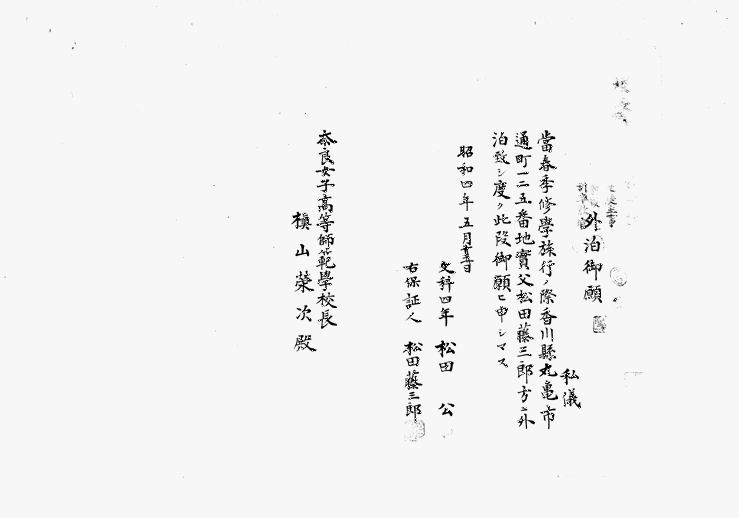 外泊御願
私儀
當春季修學旅行ノ際香川縣丸亀市
通町一二五番地實父松田藤三郎方ニ外
泊致シ度ク此段御願ヒ申シマス
昭和四年五月廿五日
文科四年 松田 公
右保証人 松田藤三郎
奈良女子高等師範學校長
槇山榮次殿